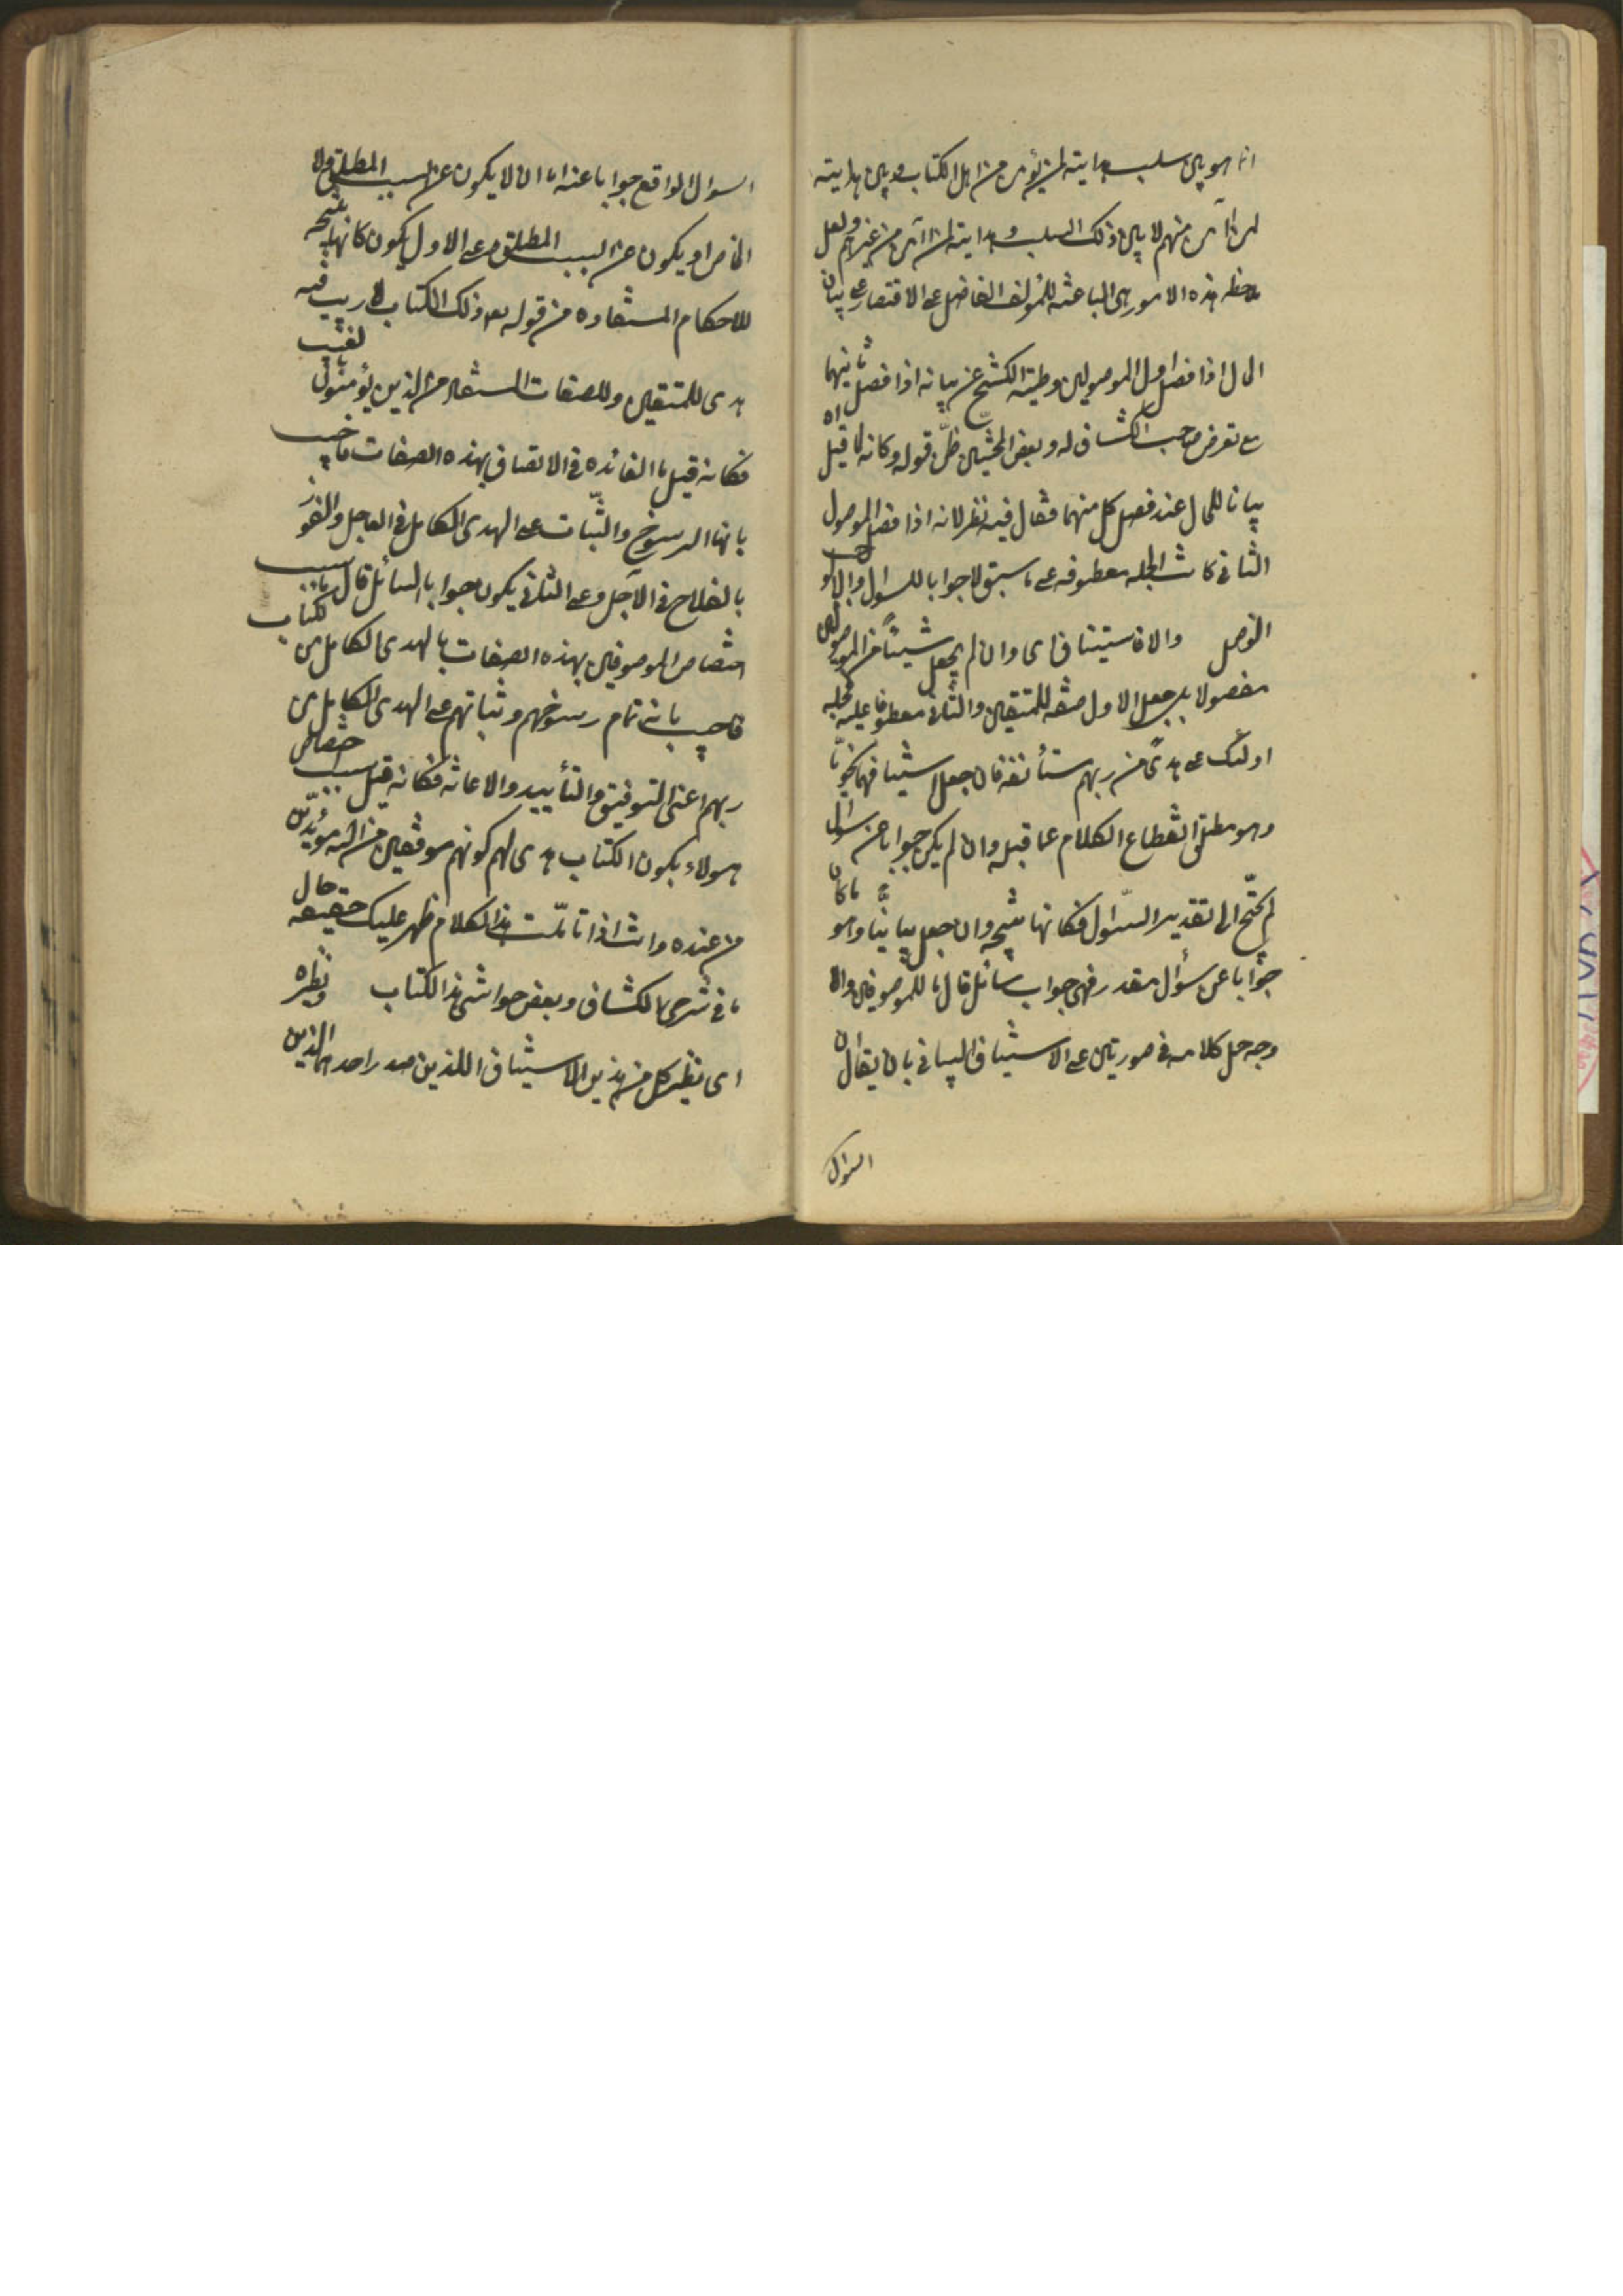 انما هو بين سلب هدايته لمن لم يؤمن من اهل الكتاب وبين هدايته
لمن آمن منهم لا بين ذلك السلب وهدايته لمن آمن من غيرهم ولعل
ملاحظه هذه الامور هى الباعثه للمؤلف الفاضل على الاقتصار على بيان
الحال اذا فصل اول الموصولين وطيه الكشح عن بيانه اذا فصل ثانيهما
مع تعرض صاحب الكشاف له وبعض المحشين ظن قوله وكانه لما قيل اه
بيانا للحال عند فصل كل منهما فقال فيه نظر لانه اذا فصل الموصول
الثانى كانت الجمله معطوفه على ما سبق لا جوابا للسوال
الفصل والا فاستيناف اى وان لم يجعل شيئاً من الموصولين
مفصولا بل جعل الاول صفه للمتقين والثانى معطوفا عليه فجمله
اولئك على هدىً من ربهم مستأنفه فان جعل استينافها نحويّا
وهو مطلق انقطاع الكلام عما قبله وان لم يكن جوابا عن سوال
لم يحتج الى تقدير السّوال فكانها نتيجه وان جعل بيانيّا وهو ما كان
جواباً عن سؤال مقدر فهى جواب سائل قال ما للموصوفين والا
وجه حمل كلامه فى صورتين على الاستيناف البيانى بان يقال ان
السوال
السوال الواقع جوابا عنه اما ان لا يكون عن السبب المطلق ولا
الخاص او يكون عن السبب المطلق وعلى الاول يكون كانها نتيجه
للاحكام المستفاده من قوله تعه ذلك الكتاب لا ريب فيه
هدى للمتقين وللصفات المستفاد من الذين يؤمنون بالغيب
فكانه قيل ما الفائده فى الاتصاف بهذه الصفات فاجيب
بانها الرسوخ والثّبات على الهدى الكامل فى العاجل والفوز
بالفلاح فى الآجل وعلى الثانى يكون جوابا لسائل قال ما سبب
اختصاص الموصوفين بهذه الصفات بالهدى الكامل من الكتاب
فاجيب بانه تمام رسوخهم وثباتهم على الهدى الكامل من
ربهم اعنى التوفيق والتأييد والاعانه فكانه قيل سبب اختصاص
هولاء بكون الكتاب هدى لهم كونهم موفقين من الله مؤيّدين
من عنده وانت اذا تأملت هذا الكلام ظهر عليك حقيقه حال
ما فى شرحى الكشاف وبعض حواشى هذا الكتاب ونظيره
اى نظير كل من هذين الاستيناف اللذين صدر احدهما بالذين